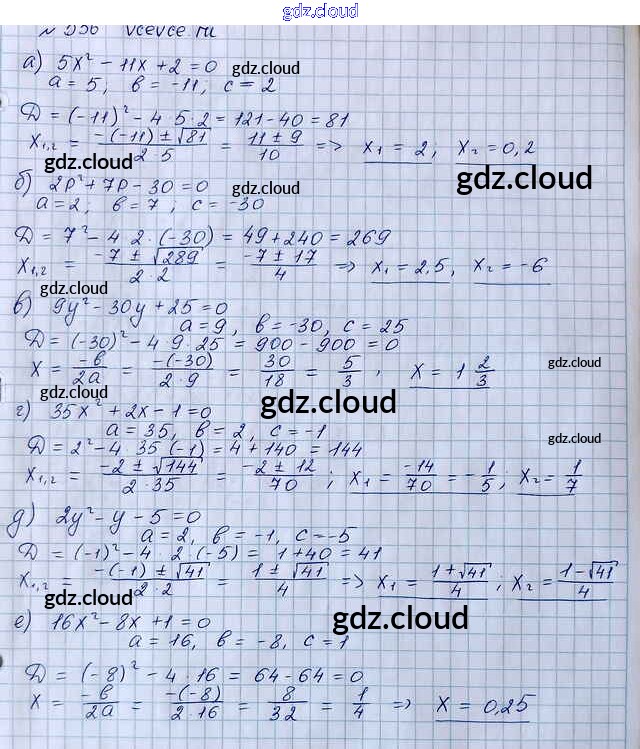 gdz.cloud
№ 556 vcevce.ru
а) 5x² - 11x + 2 = 0 gdz.cloud
a = 5, b = -11, c = 2
gdz.cloud
D = (-11)² - 4·5·2 = 121 - 40 = 81
x₁,₂ = (-(-11) ± √81)/(2·5) = (11 ± 9)/10 => x₁ = 2, x₂ = 0,2
gdz.cloud gdz.cloud
б) 2p² + 7p - 30 = 0 gdz.cloud
a = 2; b = 7; c = -30
D = 7² - 4 2·(-30) = 49 + 240 = 269
x₁,₂ = (-7 ± √289)/(2·2) = (-7 ± 17)/4 => x₁ = 2,5, x₂ = -6
gdz.cloud
в) 9y² - 30y + 25 = 0
a = 9, b = -30, c = 25
D = (-30)² - 4 9·25 = 900 - 900 = 0
x = -b/2a = -(-30)/(2·9) = 30/18 = 5/3, x = 1 2/3
gdz.cloud
gdz.cloud gdz.cloud
г) 35x² + 2x - 1 = 0
a = 35, b = 2, c = -1
gdz.cloud
D = 2² - 4·35·(-1) = 4 + 140 = 144
x₁,₂ = (-2 ± √144)/(2·35) = (-2 ± 12)/70; x₁ = -14/70 = -1/5; x₂ = 1/7
gdz.cloud
д) 2y² - y - 5 = 0
a = 2, b = -1, c = -5
gdz.cloud
D = (-1)² - 4·2·(-5) = 1 + 40 = 41
x₁,₂ = (-(-1) ± √41)/(2·2) = (1 ± √41)/4 => x₁ = (1 + √41)/4; x₂ = (1 - √41)/4
gdz.cloud gdz.cloud
е) 16x² - 8x + 1 = 0
a = 16, b = -8, c = 1
gdz.cloud
D = (-8)² - 4·16 = 64 - 64 = 0
x = -b/2a = -(-8)/(2·16) = 8/32 = 1/4 => x = 0,25
gdz.cloud gdz.cloud